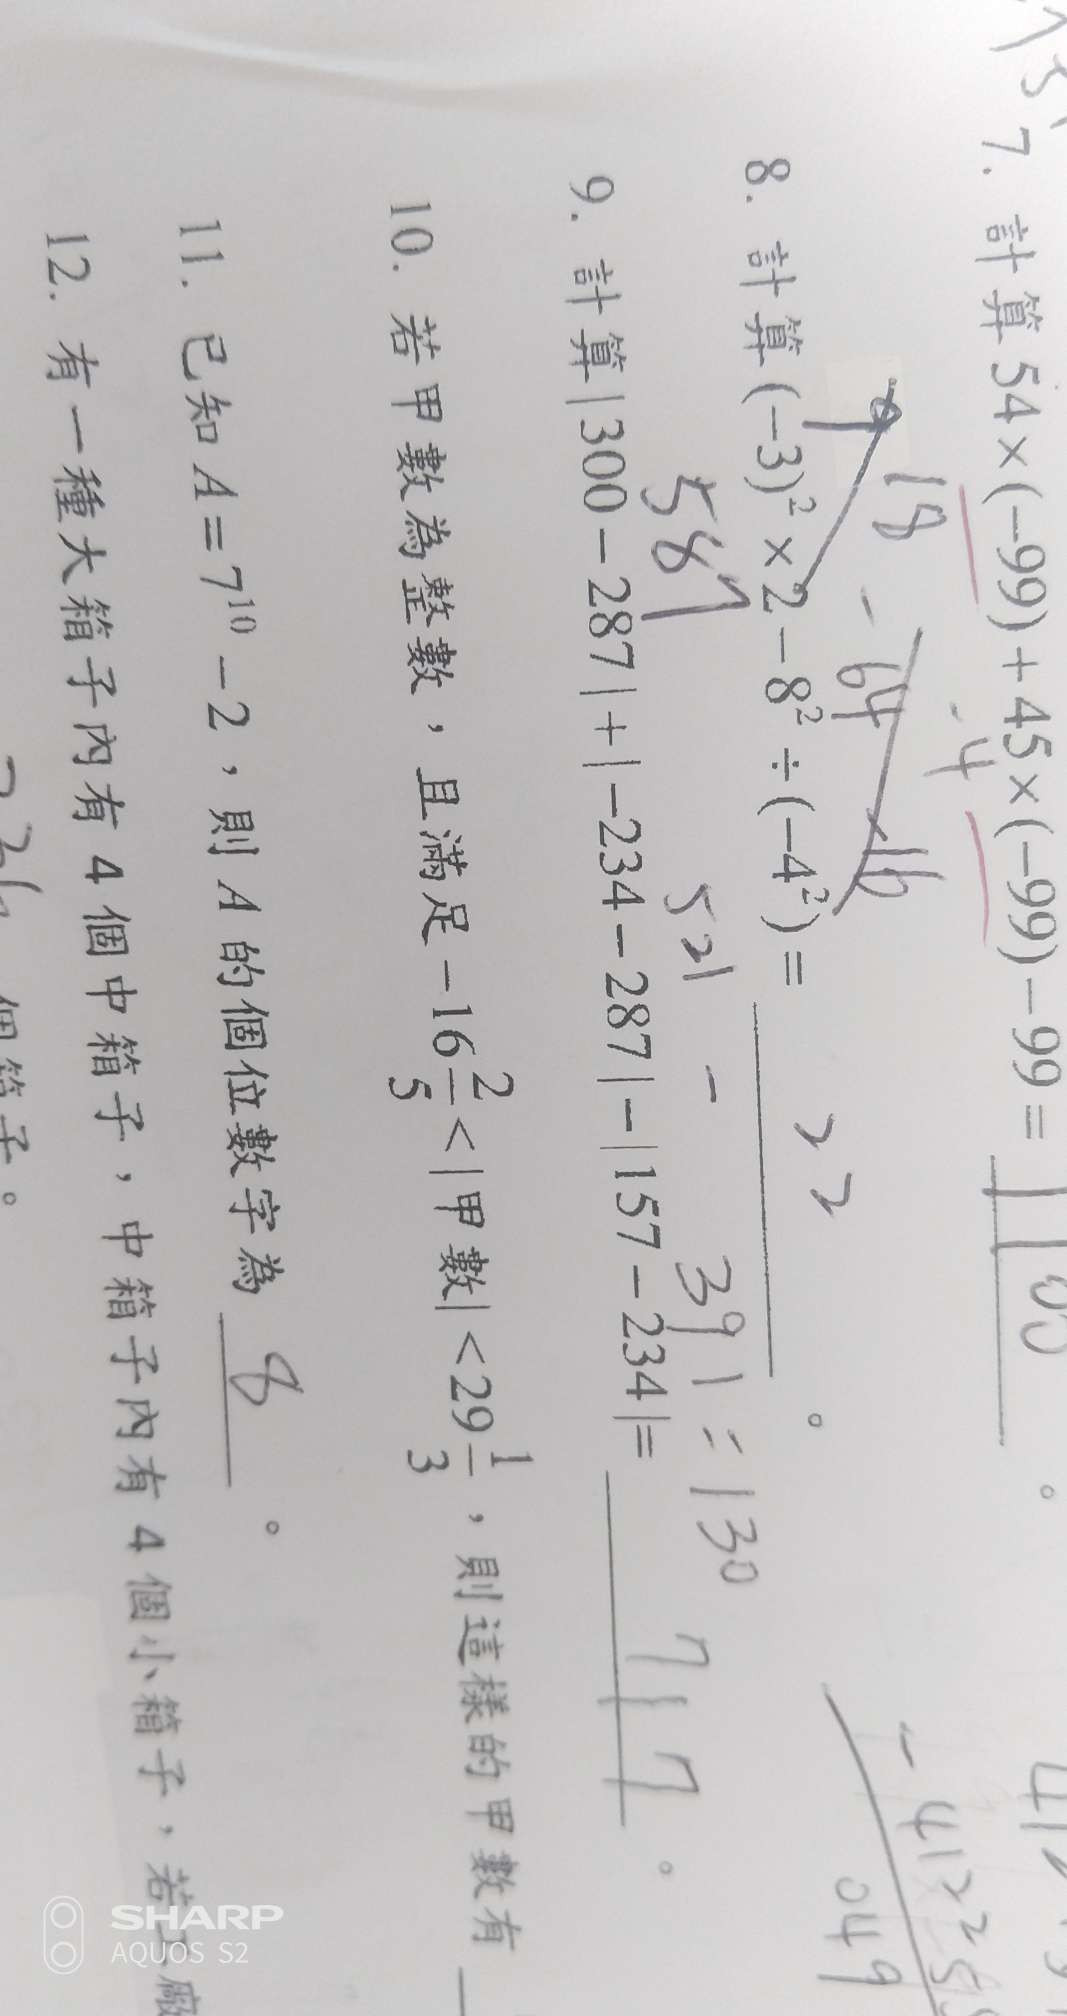 7. 計算 54×(−99)+45×(−99)−99= 1100 。
18 − 64 −16
−4
8. 計算 (−3)²×2−8²÷(−4²)= 22 。
587 521 − 391 = 130
9. 計算 |300−287|+|−234−287|−|157−234|= 717 。
10. 若甲數為整數，且滿足 −16 2/5 <|甲數|<29 1/3，則這樣的甲數有
11. 已知 A=7¹⁰−2，則 A 的個位數字為 8 。
12. 有一種大箱子內有 4 個中箱子，中箱子內有 4 個小箱子，若工廠
個箱子。
SHARP
AQUOS S2